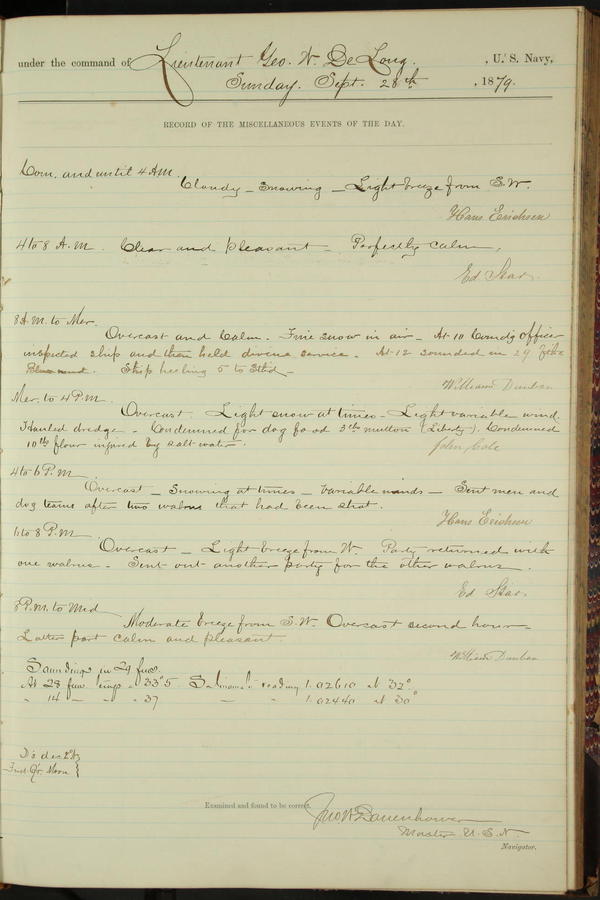 under the command of Lieutenant Geo. W. De Long. , U. S. Navy,
Sunday. Sept. 28th , 1879.
RECORD OF THE MISCELLANEOUS EVENTS OF THE DAY.
Com. and until 4 A.M.
Cloudy – Snowing – Light breeze from S.W.
Hans Erichsen
4 to 8 A.M. Clear and pleasant – Perfectly calm.
Ed Star.
8 A.M. to Mer.
Overcast and Calm. Fine snow in air – At 10 Comdg officer
inspected ship and then held divine service. At 12 sounded in 29 fths
Blue mud. Ship heeling 5 to Stbd –
William Dunbar
Mer. to 4 P.M.
Overcast. Light snow at times – Light variable wind.
Hauled dredge – Condemned for dog food 3 lbs mutton (Liberty). Condemned
10 lbs flour injured by salt water.
John Cole
4 to 6 P.M.
Overcast – Snowing at times – Variable winds – Sent men and
dog teams after two walrus that had been shot.
Hans Erichsen
6 to 8 P.M.
Overcast – Light breeze from W. Party returned with
one walrus. Sent out another party for the other walrus.
Ed Star.
8 P.M. to Mid
Moderate breeze from S.W. Overcast second hour
Latter part calm and pleasant.
William Dunbar
Soundings in 29 fms.
At 28 fms temp. 33°5 reading 1.02610 at 32°
" 14 " " " 37 " " 1.02440 at 30°
Examined and found to be correct.
Jno W Danenhower
Master U.S.N.
Navigator.